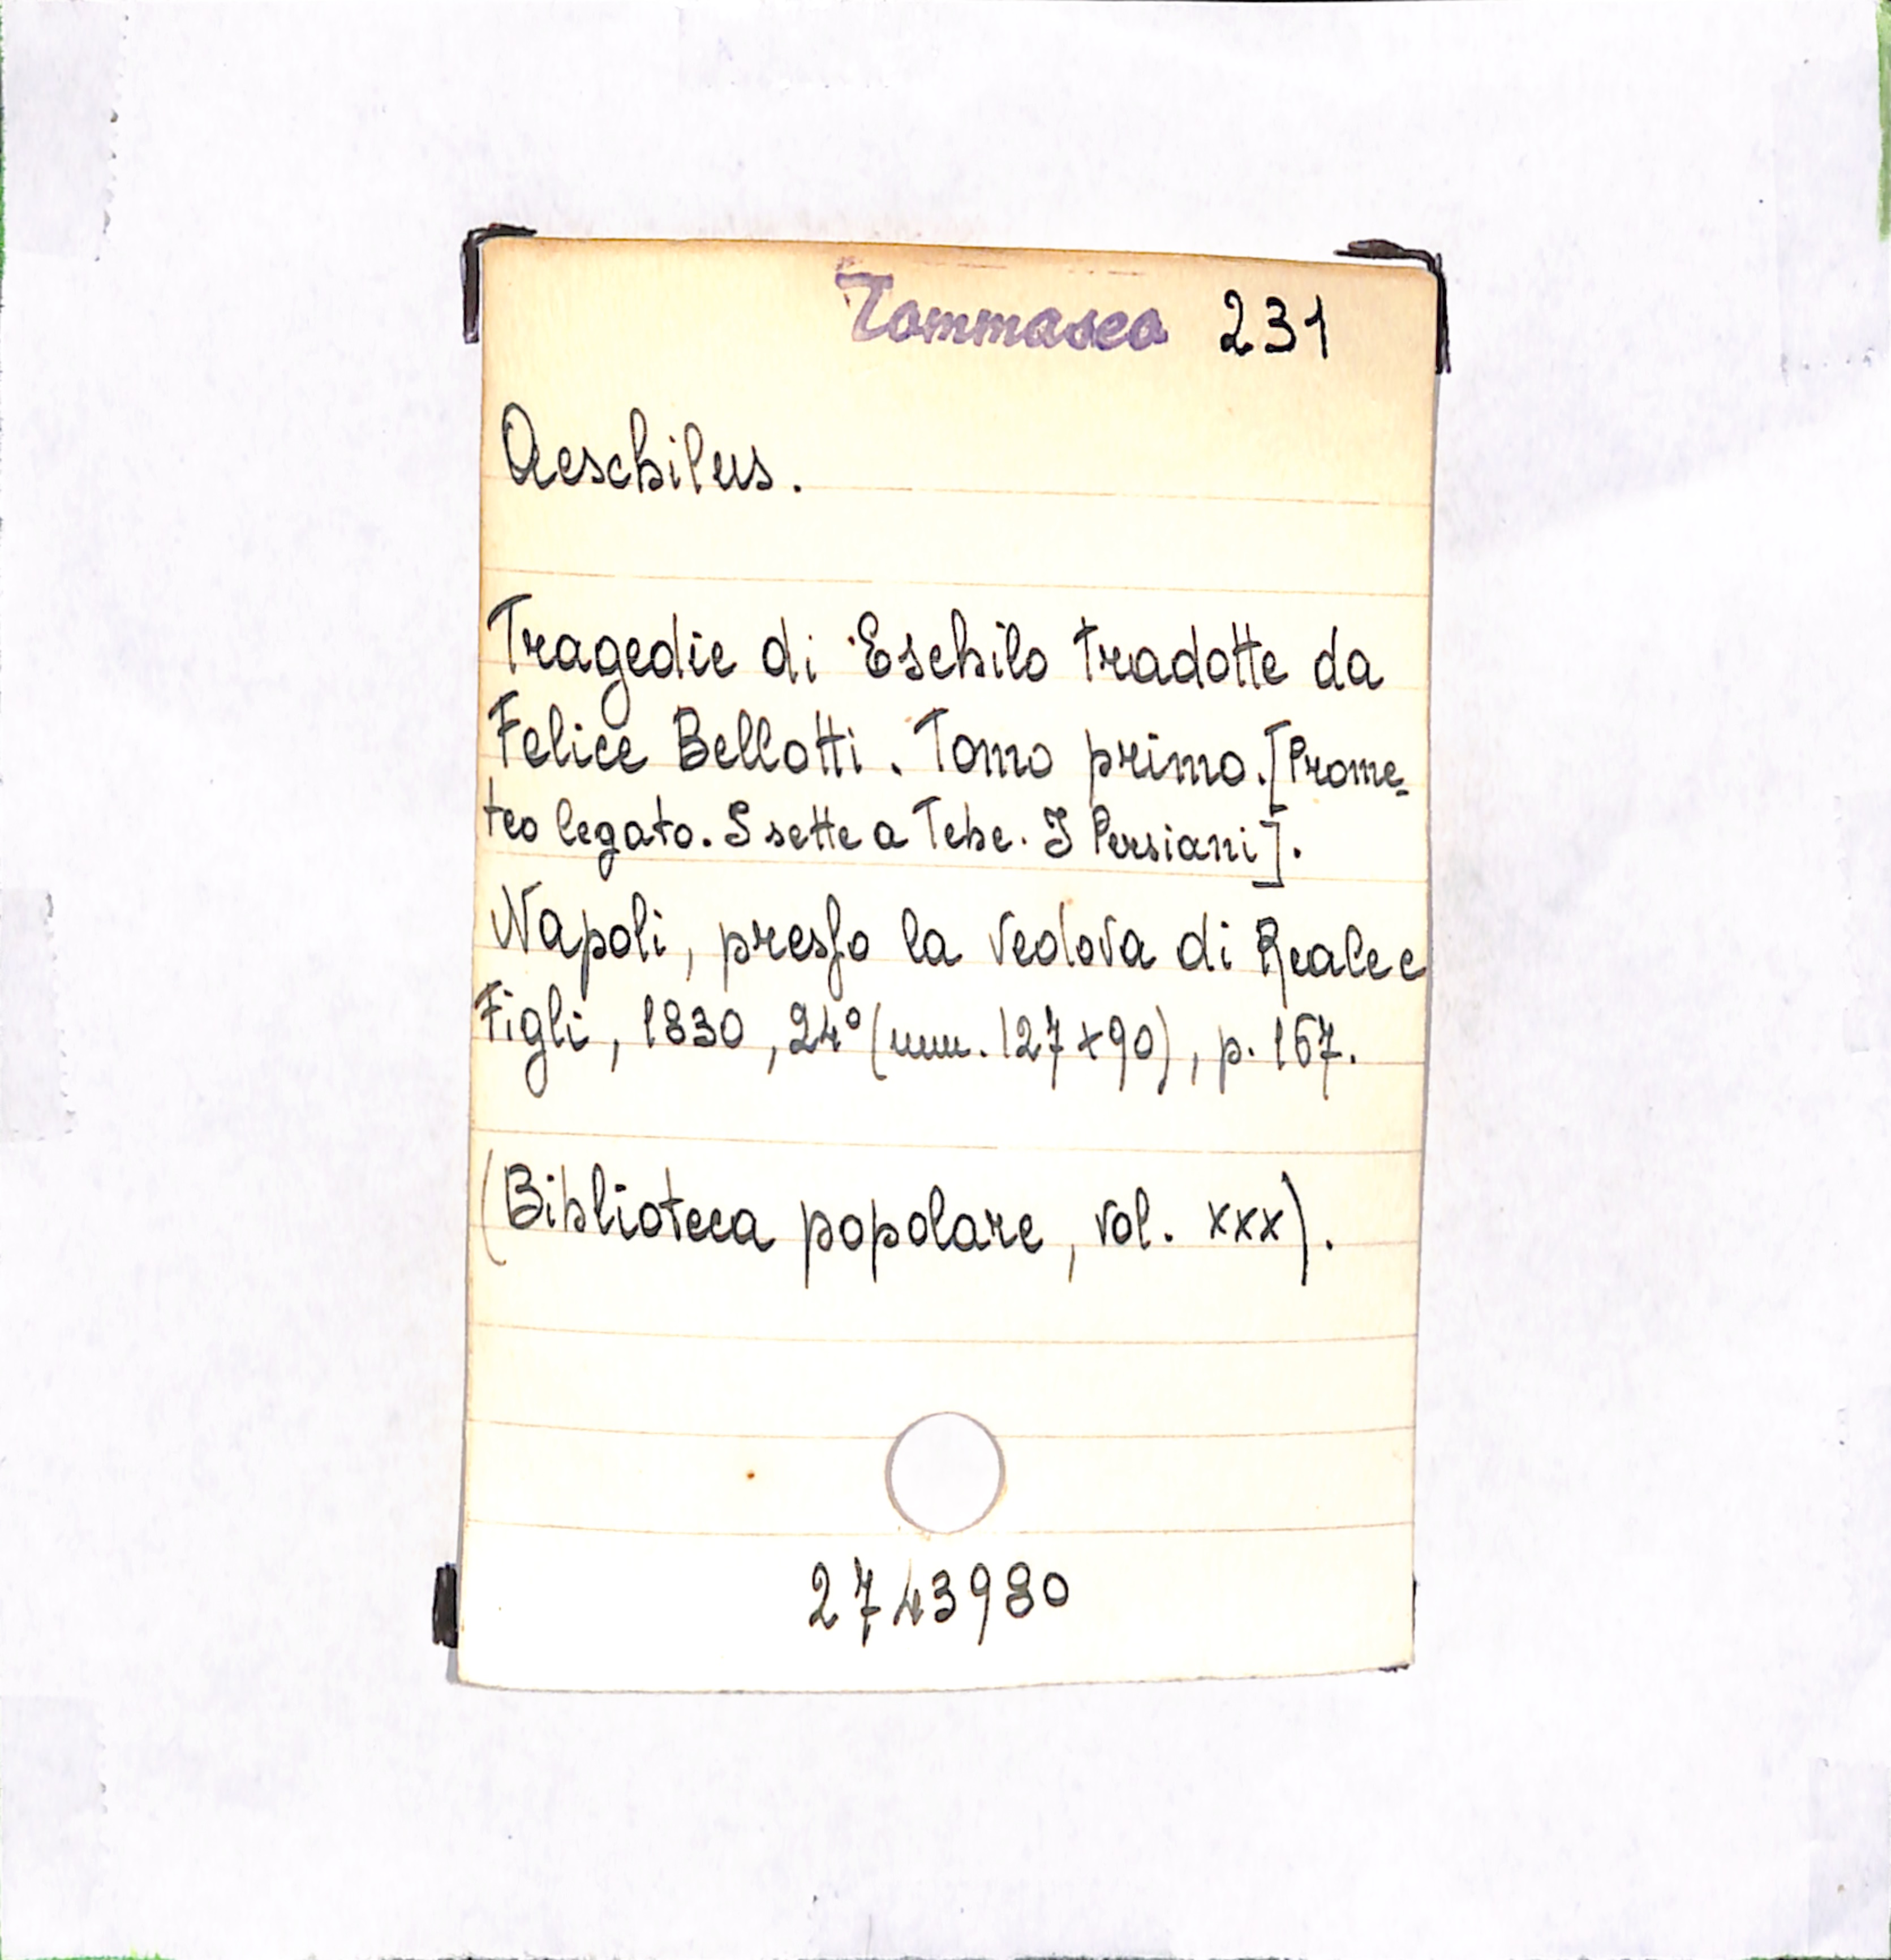 Tommaseo 231
Aeschilus.
Tragedie di Eschilo tradotte da
Felice Bellotti. Tomo primo. [Prome=
teo legato. I sette a Tebe. I Persiani].
Napoli, presso la vedova di Reale e
Figli, 1830, 24° (mm. 127×90), p. 167.
(Biblioteca popolare, vol. xxx).
2743980